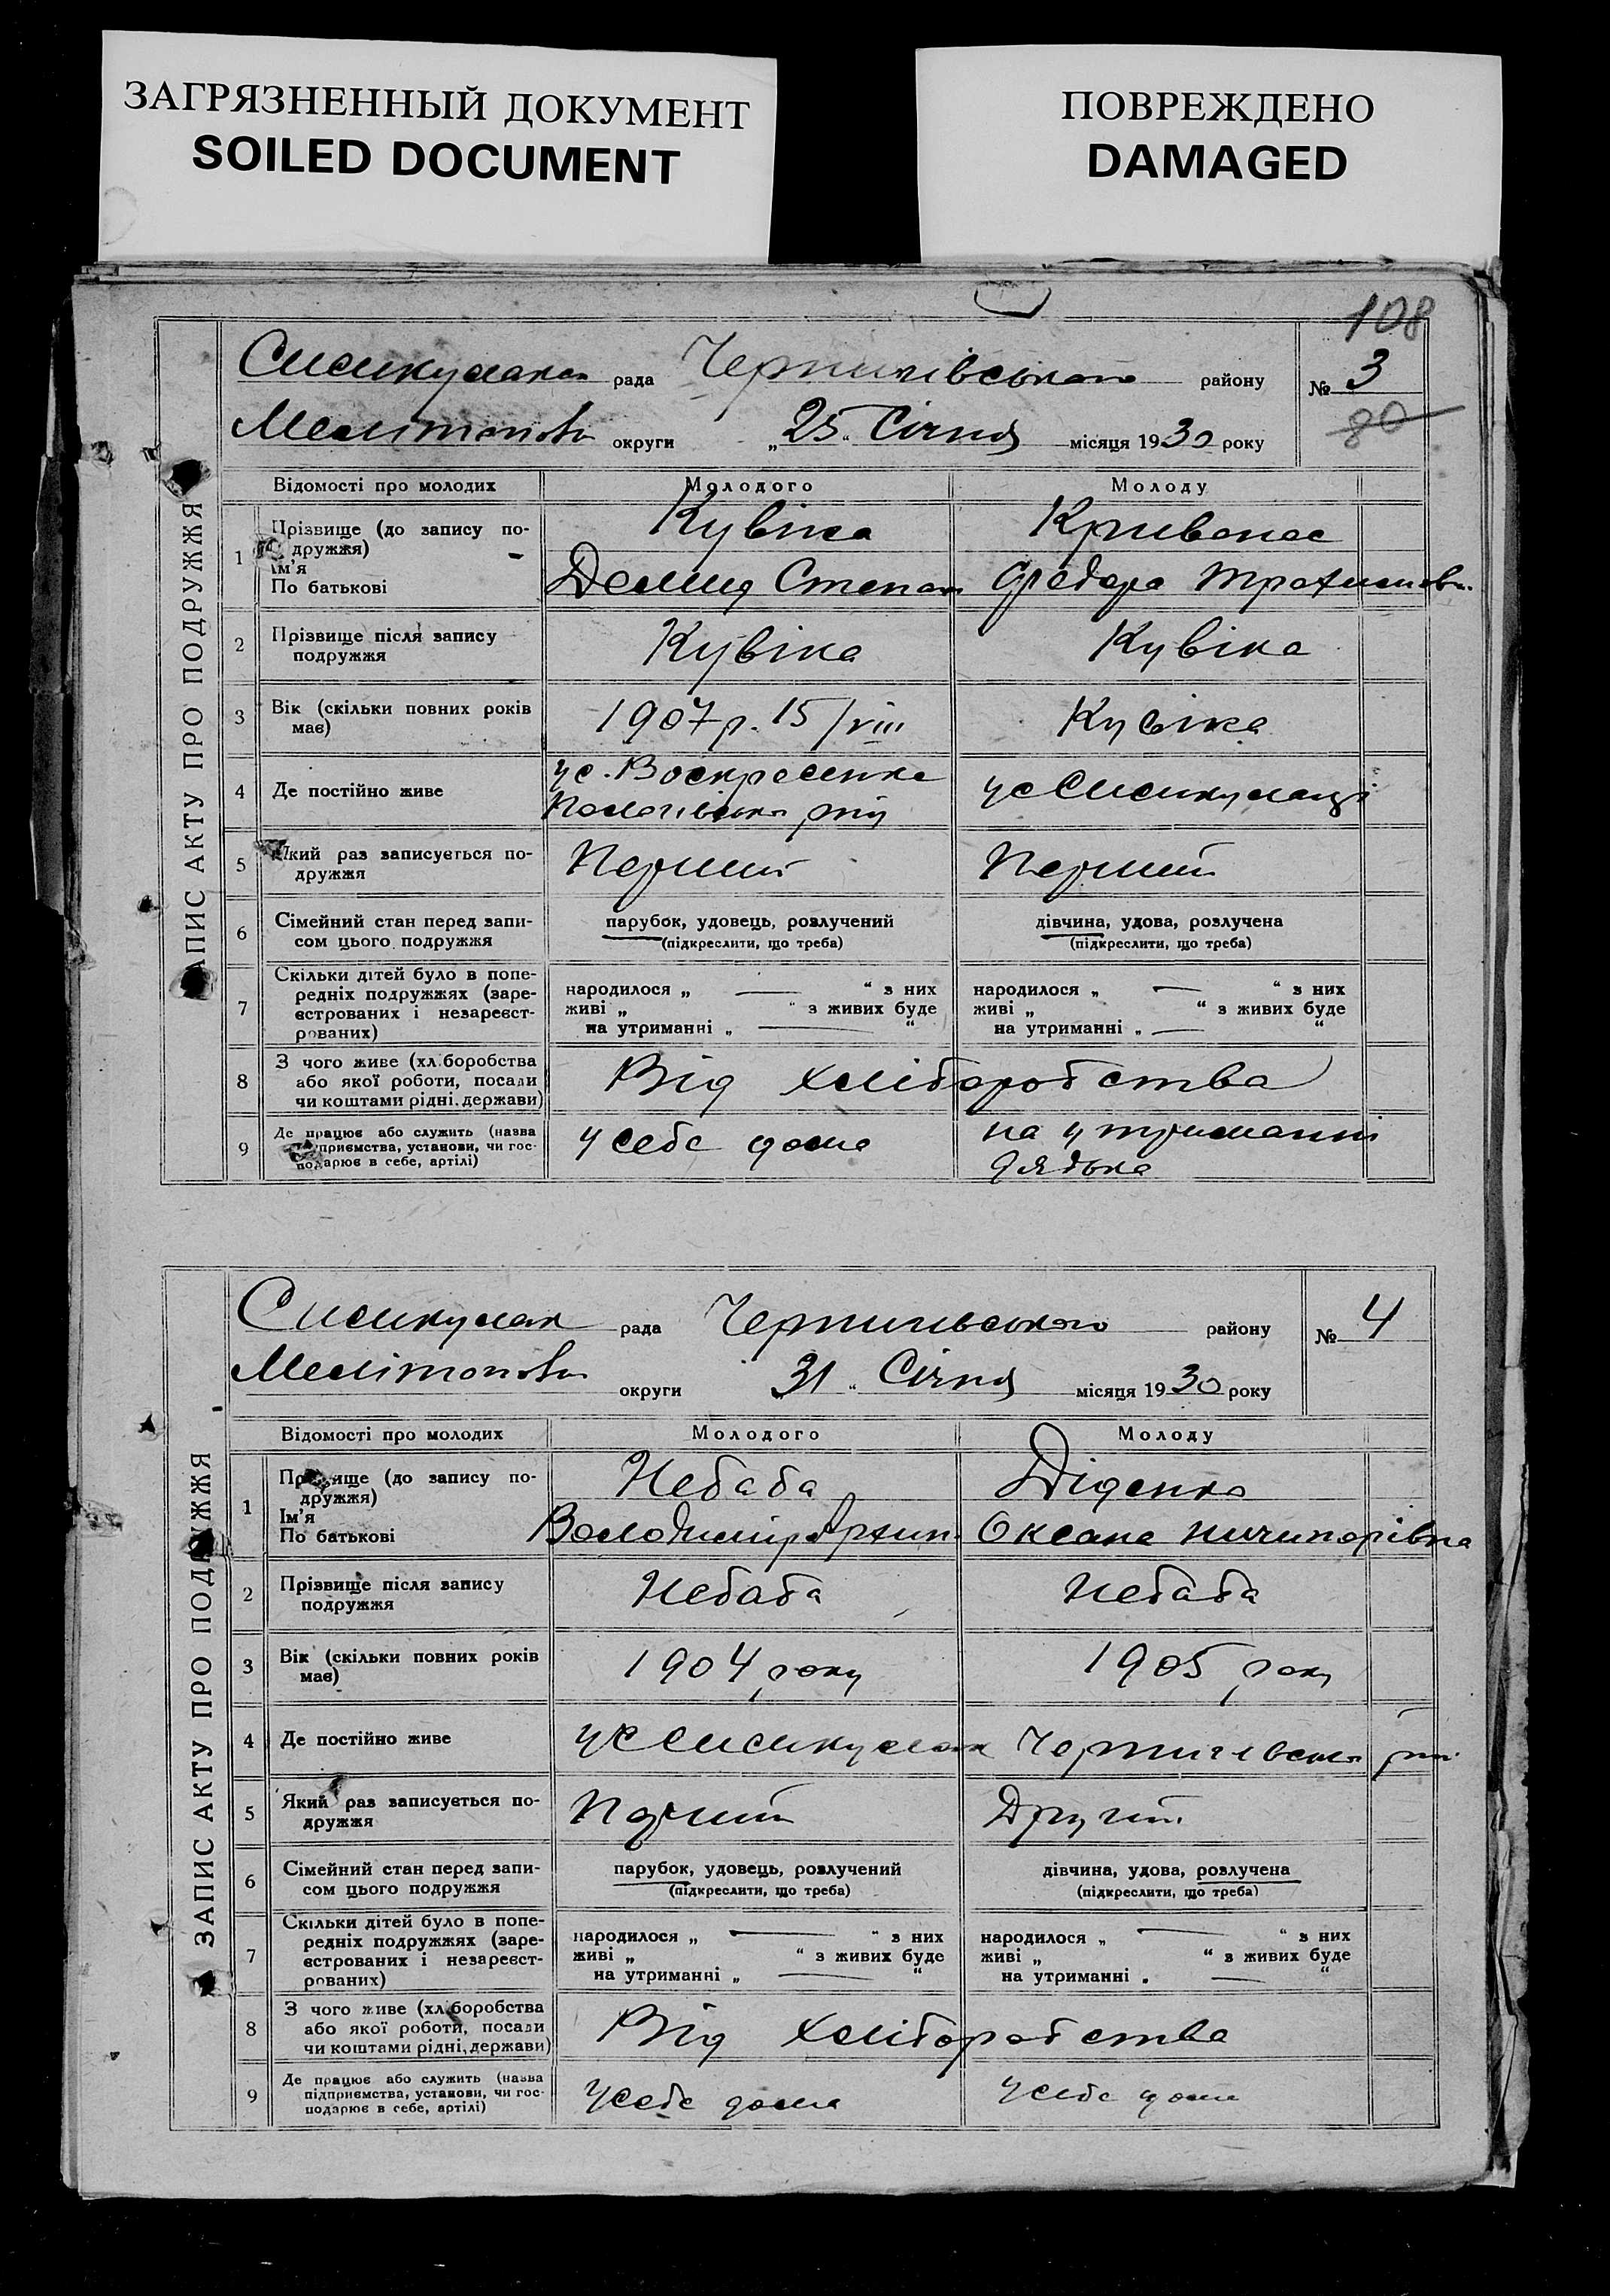 ЗАГРЯЗНЕННЫЙ ДОКУМЕНТ
SOILED DOCUMENT
ПОВРЕЖДЕНО
DAMAGED
108
ЗАПИС АКТУ ПРО ПОДРУЖЖЯ
рада Чернигівського району № 3
округи „25“ Січня місяця 1930 року 80
Відомості про молодих Молодого Молоду
1 Прізвище (до запису по-дружжя) Кувіка Кривонос
Ім'я
По батькові Демид Степан Федора Трохимовн.
2 Прізвище після запису подружжя Кувіка Кувіка
3 Вік (скільки повних років має) 1907 р. 15/VIII Кувіка
4 Де постійно живе у с. Воскресенка у с Сисикулаці
Пологівськ р-ну
5 Який раз записується по-дружжя Перший Перший
6 Сімейний стан перед запи-сом цього подружжя парубок, удовець, розлучений дівчина, удова, розлучена
(підкреслити, що треба) (підкреслити, що треба)
7 Скільки дітей було в попе-редніх подружжях (заре-єстрованих і незареєст-рованих) народилося „ — “ з них народилося „ — “ з них
живі „ “ з живих буде живі „ “ з живих буде
на утриманні „ — “ на утриманні „ — “
8 З чого живе (хліборобства або якої роботи, посади чи коштами рідні, держави) Від хліборобства
9 Де працює або служить (назва підприємства, установи, чи гос-подарює в себе, артілі) у себе дома на утриманні
дядька
ЗАПИС АКТУ ПРО ПОДРУЖЖЯ
Сисикулак рада Чернигівського району № 4
округи „31“ Січня місяця 1930 року
Відомості про молодих Молодого Молоду
1 Прізвище (до запису по-дружжя) Небаба Діденко
Ім'я
По батькові Володимір Архип. Оксана Ничипорівна
2 Прізвище після запису подружжя Небаба Небаба
3 Вік (скільки повних років має) 1904 року 1905 року
4 Де постійно живе у с Сисикулак Чернигівськ р-ну
5 Який раз записується по-дружжя Перший Другий
6 Сімейний стан перед запи-сом цього подружжя парубок, удовець, розлучений дівчина, удова, розлучена
(підкреслити, що треба) (підкреслити, що треба)
7 Скільки дітей було в попе-редніх подружжях (заре-єстрованих і незареєст-рованих) народилося „ — “ з них народилося „ — “ з них
живі „ “ з живих буде живі „ “ з живих буде
на утриманні „ — “ на утриманні „ — “
8 З чого живе (хліборобства або якої роботи, посади чи коштами рідні, держави) Від хліборобства
9 Де працює або служить (назва підприємства, установи, чи гос-подарює в себе, артілі) у себе дома у себе дома